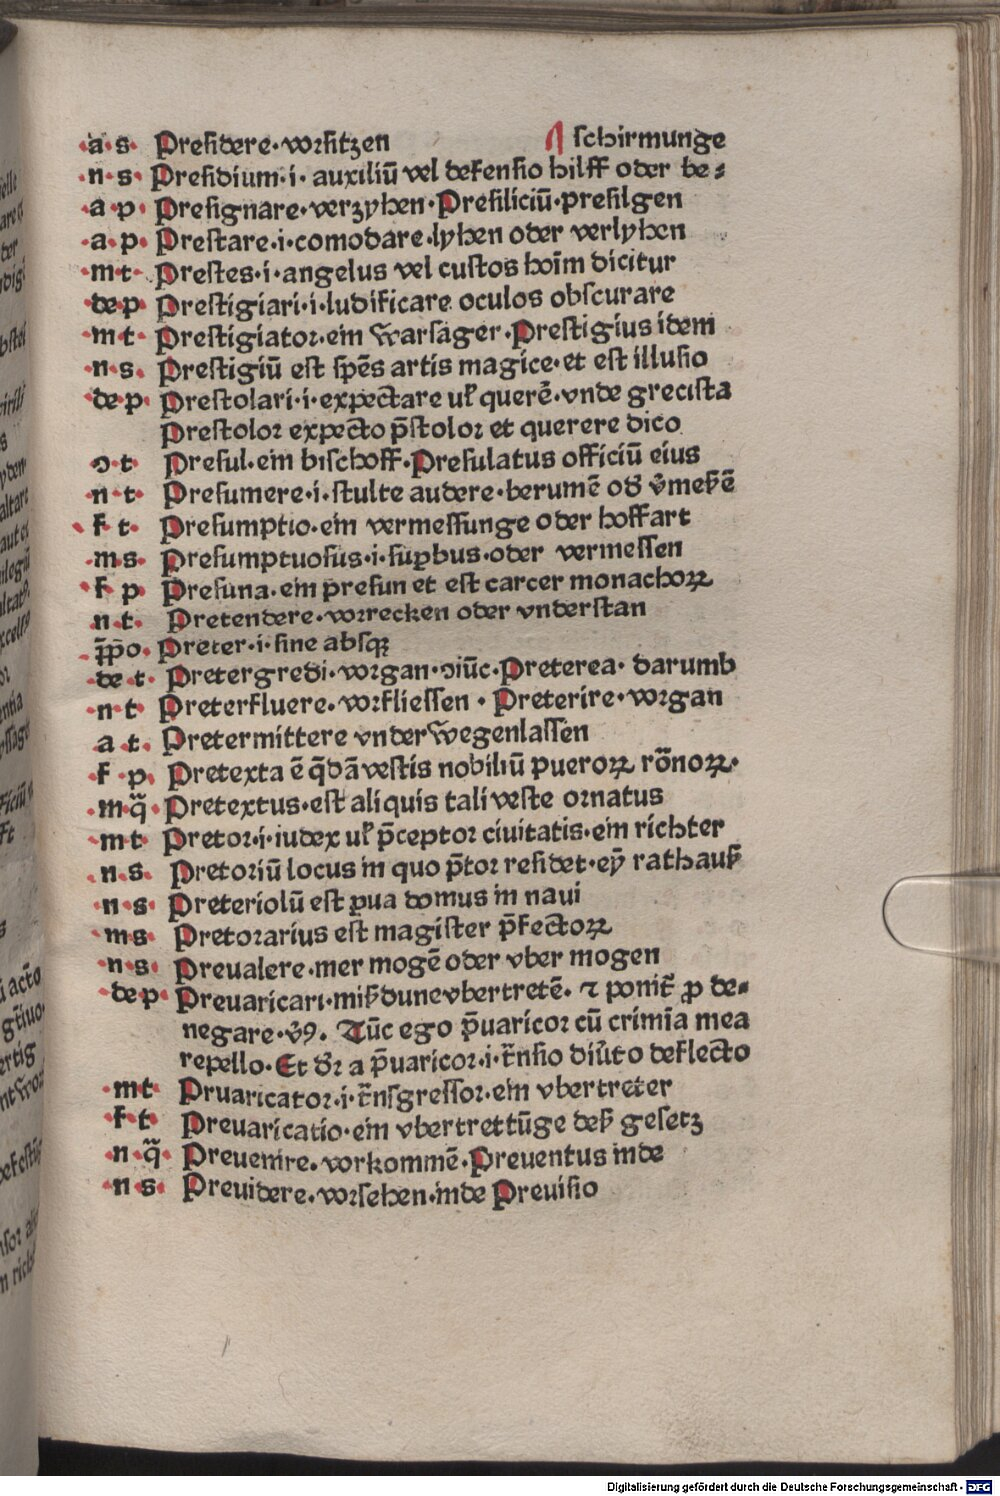 ·a·s· Presidere·vorsitzen ¶ schirmunge
·n·s· Presidium·i·auxiliū vel defensio hilff oder be⸗
·a·p· Presignare·verzyhen·Presiliciū·presilgen
·a·p· Prestare·i·comodare·lyhen oder verlyhen
·m·t· Prestes·i·angelus vel custos hoīm dicitur
de·p· Prestigiari·i·ludificare oculos obscurare
·m·t· Prestigiator·ein warsager·Prestigius idem
·n·s· Prestigiū est spēs artis magice·et est illusio
·de·p· Prestolari·i·expectare uł querē·vnde grecista
Prestolor expecto p̄stolor et querere dico
·ɔ·t· Presul·ein bischoff·Presulatus officiū eius
·n·t· Presumere·i·stulte audere·berumē od v̄meßē
·f·t· Presumptio·ein vermessunge oder hoffart
·m·s· Presumptuosus·i·suꝑbus·oder vermessen
·f·p· Presuna·ein presun et est carcer monachoꝝ
·n·t· Pretendere·vorrecken oder vnderstan
p̄p̄o· Preter·i·sine absqꝫ
·de·t· Pretergredi·vorgan·ɔiūc·Preterea·darumb
·n·t· Preterfluere·vorfliessen·Preterire·vorgan
a t· Pretermittere vnderwegenlassen
·f·p· Pretexta ē q̄dā vestis nobiliū pueroꝝ rōnoꝝ·
·m·q̄· Pretextus·est aliquis tali veste ornatus
·m·t· Pretor·i·iudex uł p̄ceptor ciuitatis·ein richter
·n·s· Pretoriū locus in quo p̄tor residet·eȳ rathauß
·n·s· Preteriolū est ꝑua domus in naui
·m·s· Pretorarius est magister p̄fectoꝝ
·n·s· Preualere·mer mogē oder vber mogen
·de·p· Preuaricari·mißdun evbertretē·⁊ ponit̄ ꝓ de⸗
negare·v̄ꝰ. Tūc ego p̄uaricor cū crimīa mea
repello·Et dr̄ a p̄uaricor·i·t̄nsio diūto deflecto
·m·t· Pruaricator·i·t̄nsgressor·ein vbertreter
·f·t· Preuaricatio·ein vbertrettūge deß gesetz
·n·q̄· Preuenire·vorkommē·Preuentus inde
·n·s· Preuidere·vorsehen·inde Preuisio
Digitalisierung gefördert durch die Deutsche Forschungsgemeinschaft - DFG